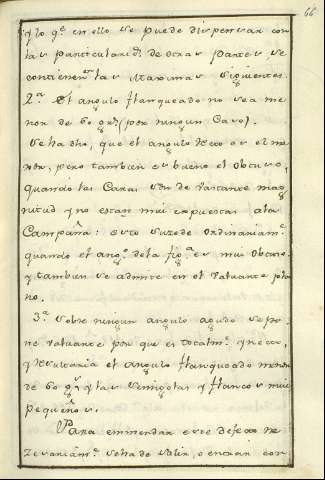 66
y lo q.e en ello se puede dispensar con
las particularid.s de otras partes, se
contienen las Maximas siguientes.
2.a El angulo flanqueado no sea me
nor de 60 gr.s (por ningun Caso).
Se ha dho, que el angulo Recto es el me
xor, pero tambien es bueno el obtuso,
quando las Caras son de bastante mag
nitud y no estan mui expuestas ala
Campaña: esto sucede ordinariam.te
quando el ang.o dela fig.a es mui obtuso
y tambien se admite en el valuarte pla
no.
3.a Sobre ningun angulo agudo se po
ne valuarte por que es totalm.te
y resultaria el angulo flanqueado menor
de 60 g.s y las semigolas y flancos mui
pequeños.
Para emmendar este defecto ne
zesariam.te se ha de salir, o entrar con